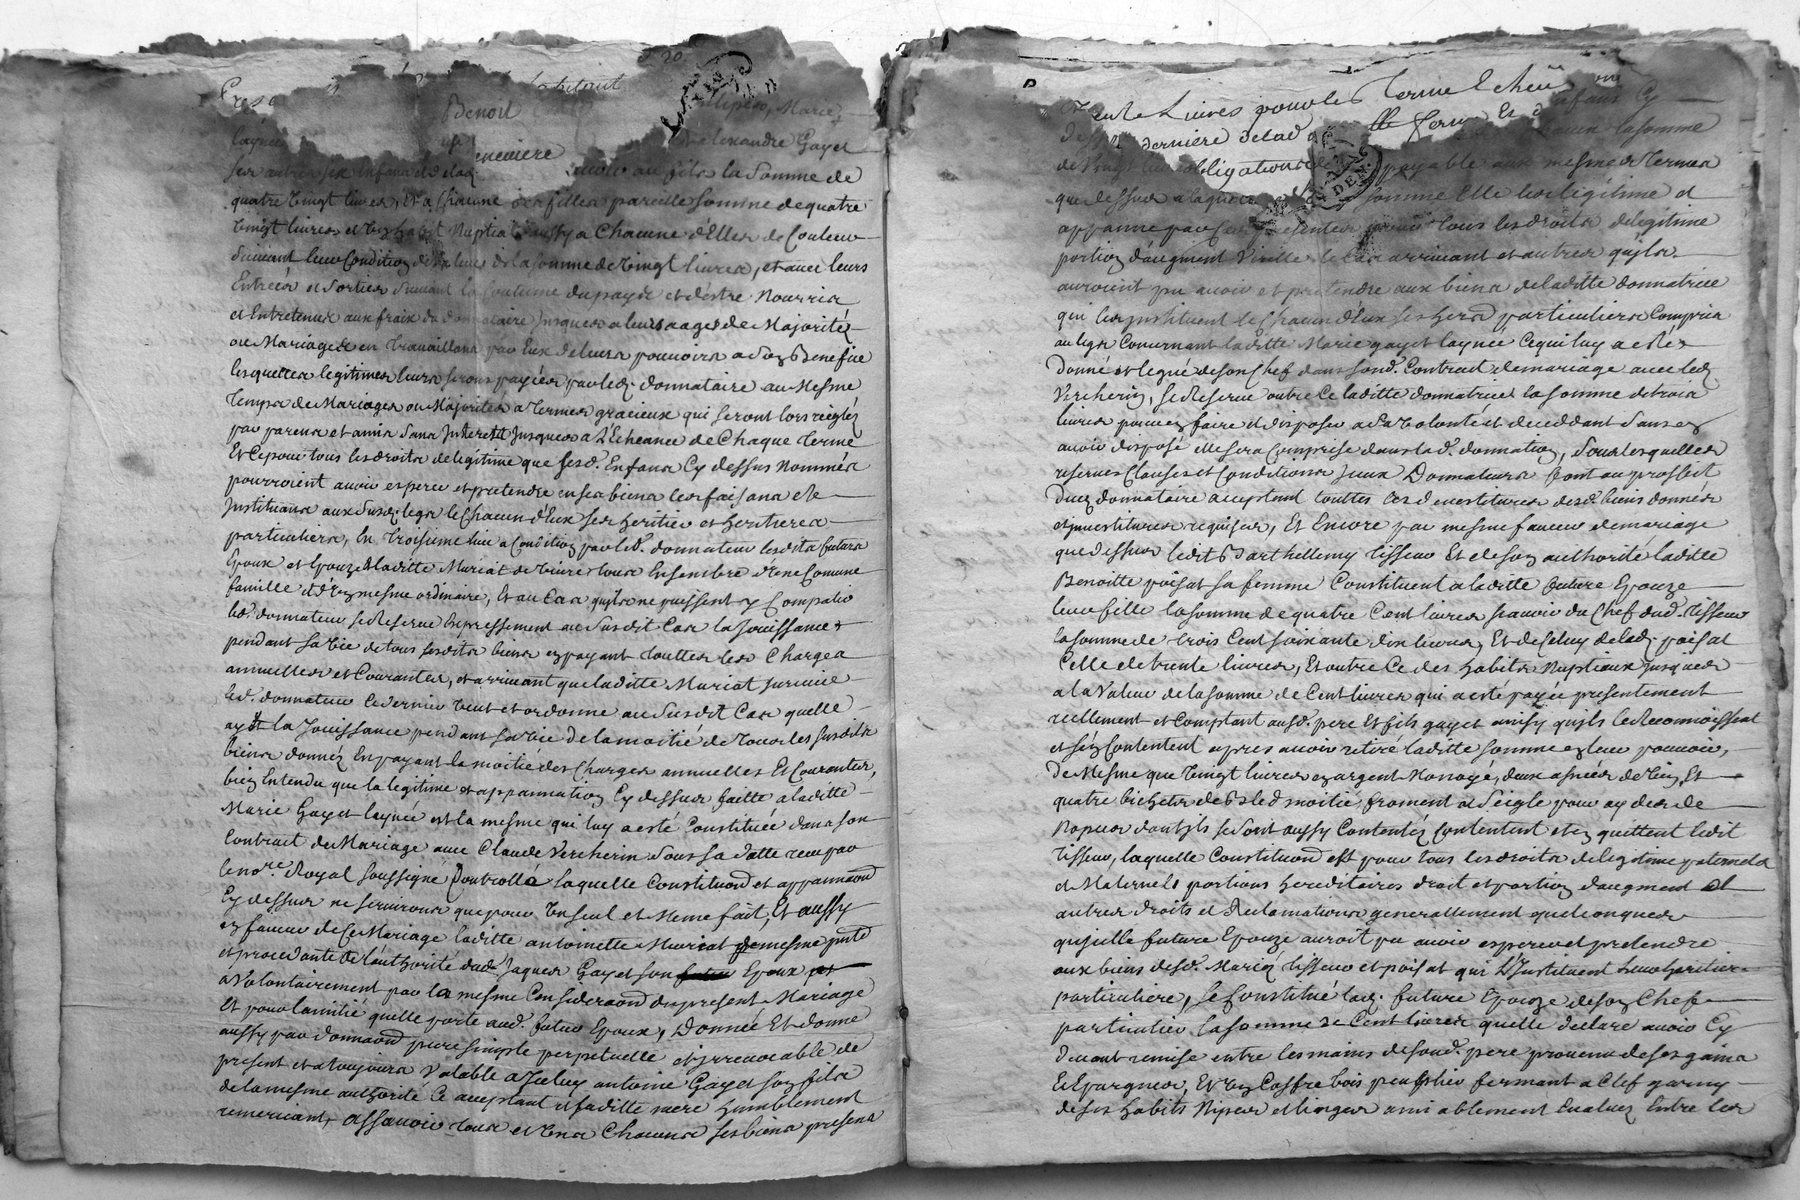 Benoit
Marie
Alexandre Gayet
ses autres six enfans et de lad. au fils la somme de
quatre vingt livres, et a chacune des filles pareille somme de quatre
vingt livres et un habit nuptial aussy a chacune d'elles de couleur
suivant leur condition de valeur de la somme de vingt livres, et avec leurs
entrées et sorties suivant la coutume du pays et d'estre nourris
et entretenus aux fraix du donnataire jusques a leurs aages de majorité
ou mariage en travaillans par eux de leurs pouvoirs a son benefice
lesquelles legitimes leurs seront payées par led. donnataire au mesme
temps de mariages ou majorités a termes gracieux qui seront lors reiglés
par parens et amis sans interest jusques a l'echeance de chaque terme
et ce pour tous les droits de legitime que sesd. enfans cy dessus nommés
pourroient avoir esperer et pretendre en ses biens les faisans et
instituans aux susd. legs le chacun d'eux ses heritiers et heritieres
particuliers, en troisieme lieu a condition par led. donnateur lesdits futurs
epoux et epouze et laditte Muriat de vivre tous ensembre d'une comune
famille et d'un mesme ordinaire, et au cas quils ne puissent y compatir
led. donnateur se reserve expressement au susdit cas la jouissance
pendant sa vie de tous sesdits biens en payant touttes les charges
annuelles et courantes, et arrivant que laditte Muriat survive
led. donnateur ce dernier veut et ordonne au susdit cas quelle
ayt la jouissance pendant sa vie de la moitié de tous les susdits
biens donnéz en payant la moitié des charges annuelles et courantes,
bien entendu que la legitime et appannation cy dessus faitte a laditte
Marie Gayet laynée est la mesme qui luy a esté constituée dans son
contrat de mariage avec Claude Vercherin sous sa datte receu par
le no.re royal soussigné controllé laquelle constitu.on et appanna.on
cy dessus ne serviront que pour un seul et meme fait, et aussy
en faveur de ce mariage laditte antoinette Muriat
et procedante de l'authorité dud. Jaques Gayet son epoux
a volontairement par la mesme considera.on du present mariage
et pour lamitié quelle porte aud. futur epoux, donnée et donne
aussy par donna.on pure simple perpetuelle et irrevocable de
present et a toujours valable a iceluy antoine Gayet son fils
de la mesme authorité ce acceptant et saditte mere humblement
remerciant, assavoir tous et uns chacuns ses biens presens
trente livres pour les terme echeu
derniere de lad.
obligation payable aux mesmes termes
que dessus a laquelle somme elle les legitime et
appanne par ces presentes pour tous les droits de legitime
portion d'augment virille le cas arrivant et autres quils
auroient pu avoir et pretendre aux biens de laditte donnatrice
qui les instituent le chacun d'eux ses hers particuliers compris
au legs concernant laditte Marie gayet laynée ce qui luy a esté
donné et legué de son chef dans sond. contrat de mariage avec led.
Vercherin, se reserve outre ce laditte donnatrice la somme de trois
livres pour en faire et disposer a sa volonté et decedant sans en
avoir disposé elle sera comprise dans lad. donnation, sous lesquelles
reserves clauses et conditions iceux donnateurs
donnataire acceptant touttes devestitures desd. biens donnés
et investitures requises, et encore par mesme faveur de mariage
que dessus ledit Barthellemy Tisseur et de son authorité laditte
Benoitte poisat sa femme constituent a laditte future epouze
leur fille la somme de quatre cent livres sçavoir du chef dud. Tisseur
la somme de trois cent soixante dix livres, et de celuy de lad. poisat
celle de trente livres, et outre ce des habits nuptiaux jusques
a la valeur de la somme de cent livres qui a esté payée presentement
reellement et comptant ausd. pere et fils gayet ainsy quils le reconnoissent
et s'en contentent apres avoir retiré laditte somme en leur pouvoir,
de mesme que vingt livres en argent monnoyé, deux asnées de vin et
quatre bichets de bled moitié froment et seigle pour aydes de
nopces dont ils se sont aussy contentéz contentent et en quittent ledit
Tisseur, laquelle constitu.on est pour tous les droits de legitime paternels
et maternels portions hereditaires droit et portion daugment et
autres droits et reclamations generallement quelconques
qu'icelle future epouze auroit pu avoir esperer et pretendre
aux biens desd. mariéz Tisseur et poisat qui l'instituent leur heritiere
particuliere, se constitue lad. future epouze de son chef
particulier la somme de cent livres quelle declare avoir cy
devant remise entre les mains de sond. pere provenu de ses gains
et epargnes, et un coffre bois peuplier fermant a clef garny
de ses habits nipes et linges amiablement evaluez entre les